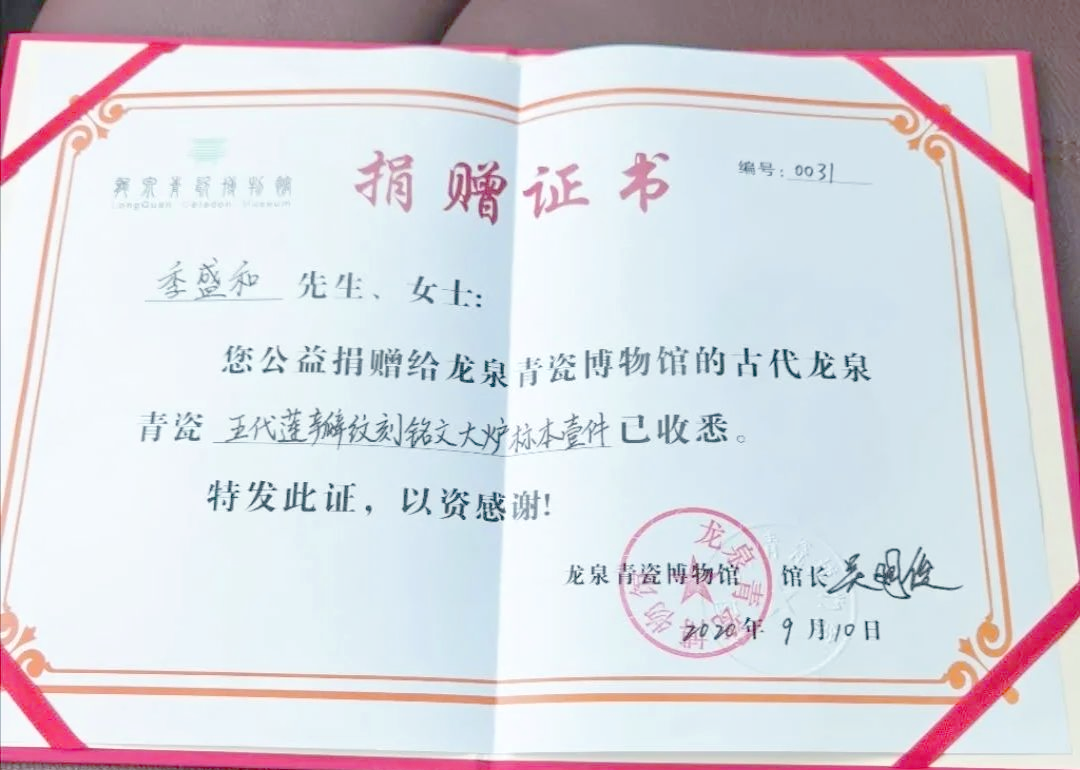 龙泉青瓷博物馆
LongQuan Celadon Museum
捐赠证书
编号：0031
季盛和 先生、女士：
您公益捐赠给龙泉青瓷博物馆的古代龙泉
青瓷 五代莲瓣纹刻铭文大炉标本壹件 已收悉。
特发此证，以资感谢！
龙泉青瓷博物馆 馆长 吴明俊
2020年9月10日
龙泉青瓷博物馆